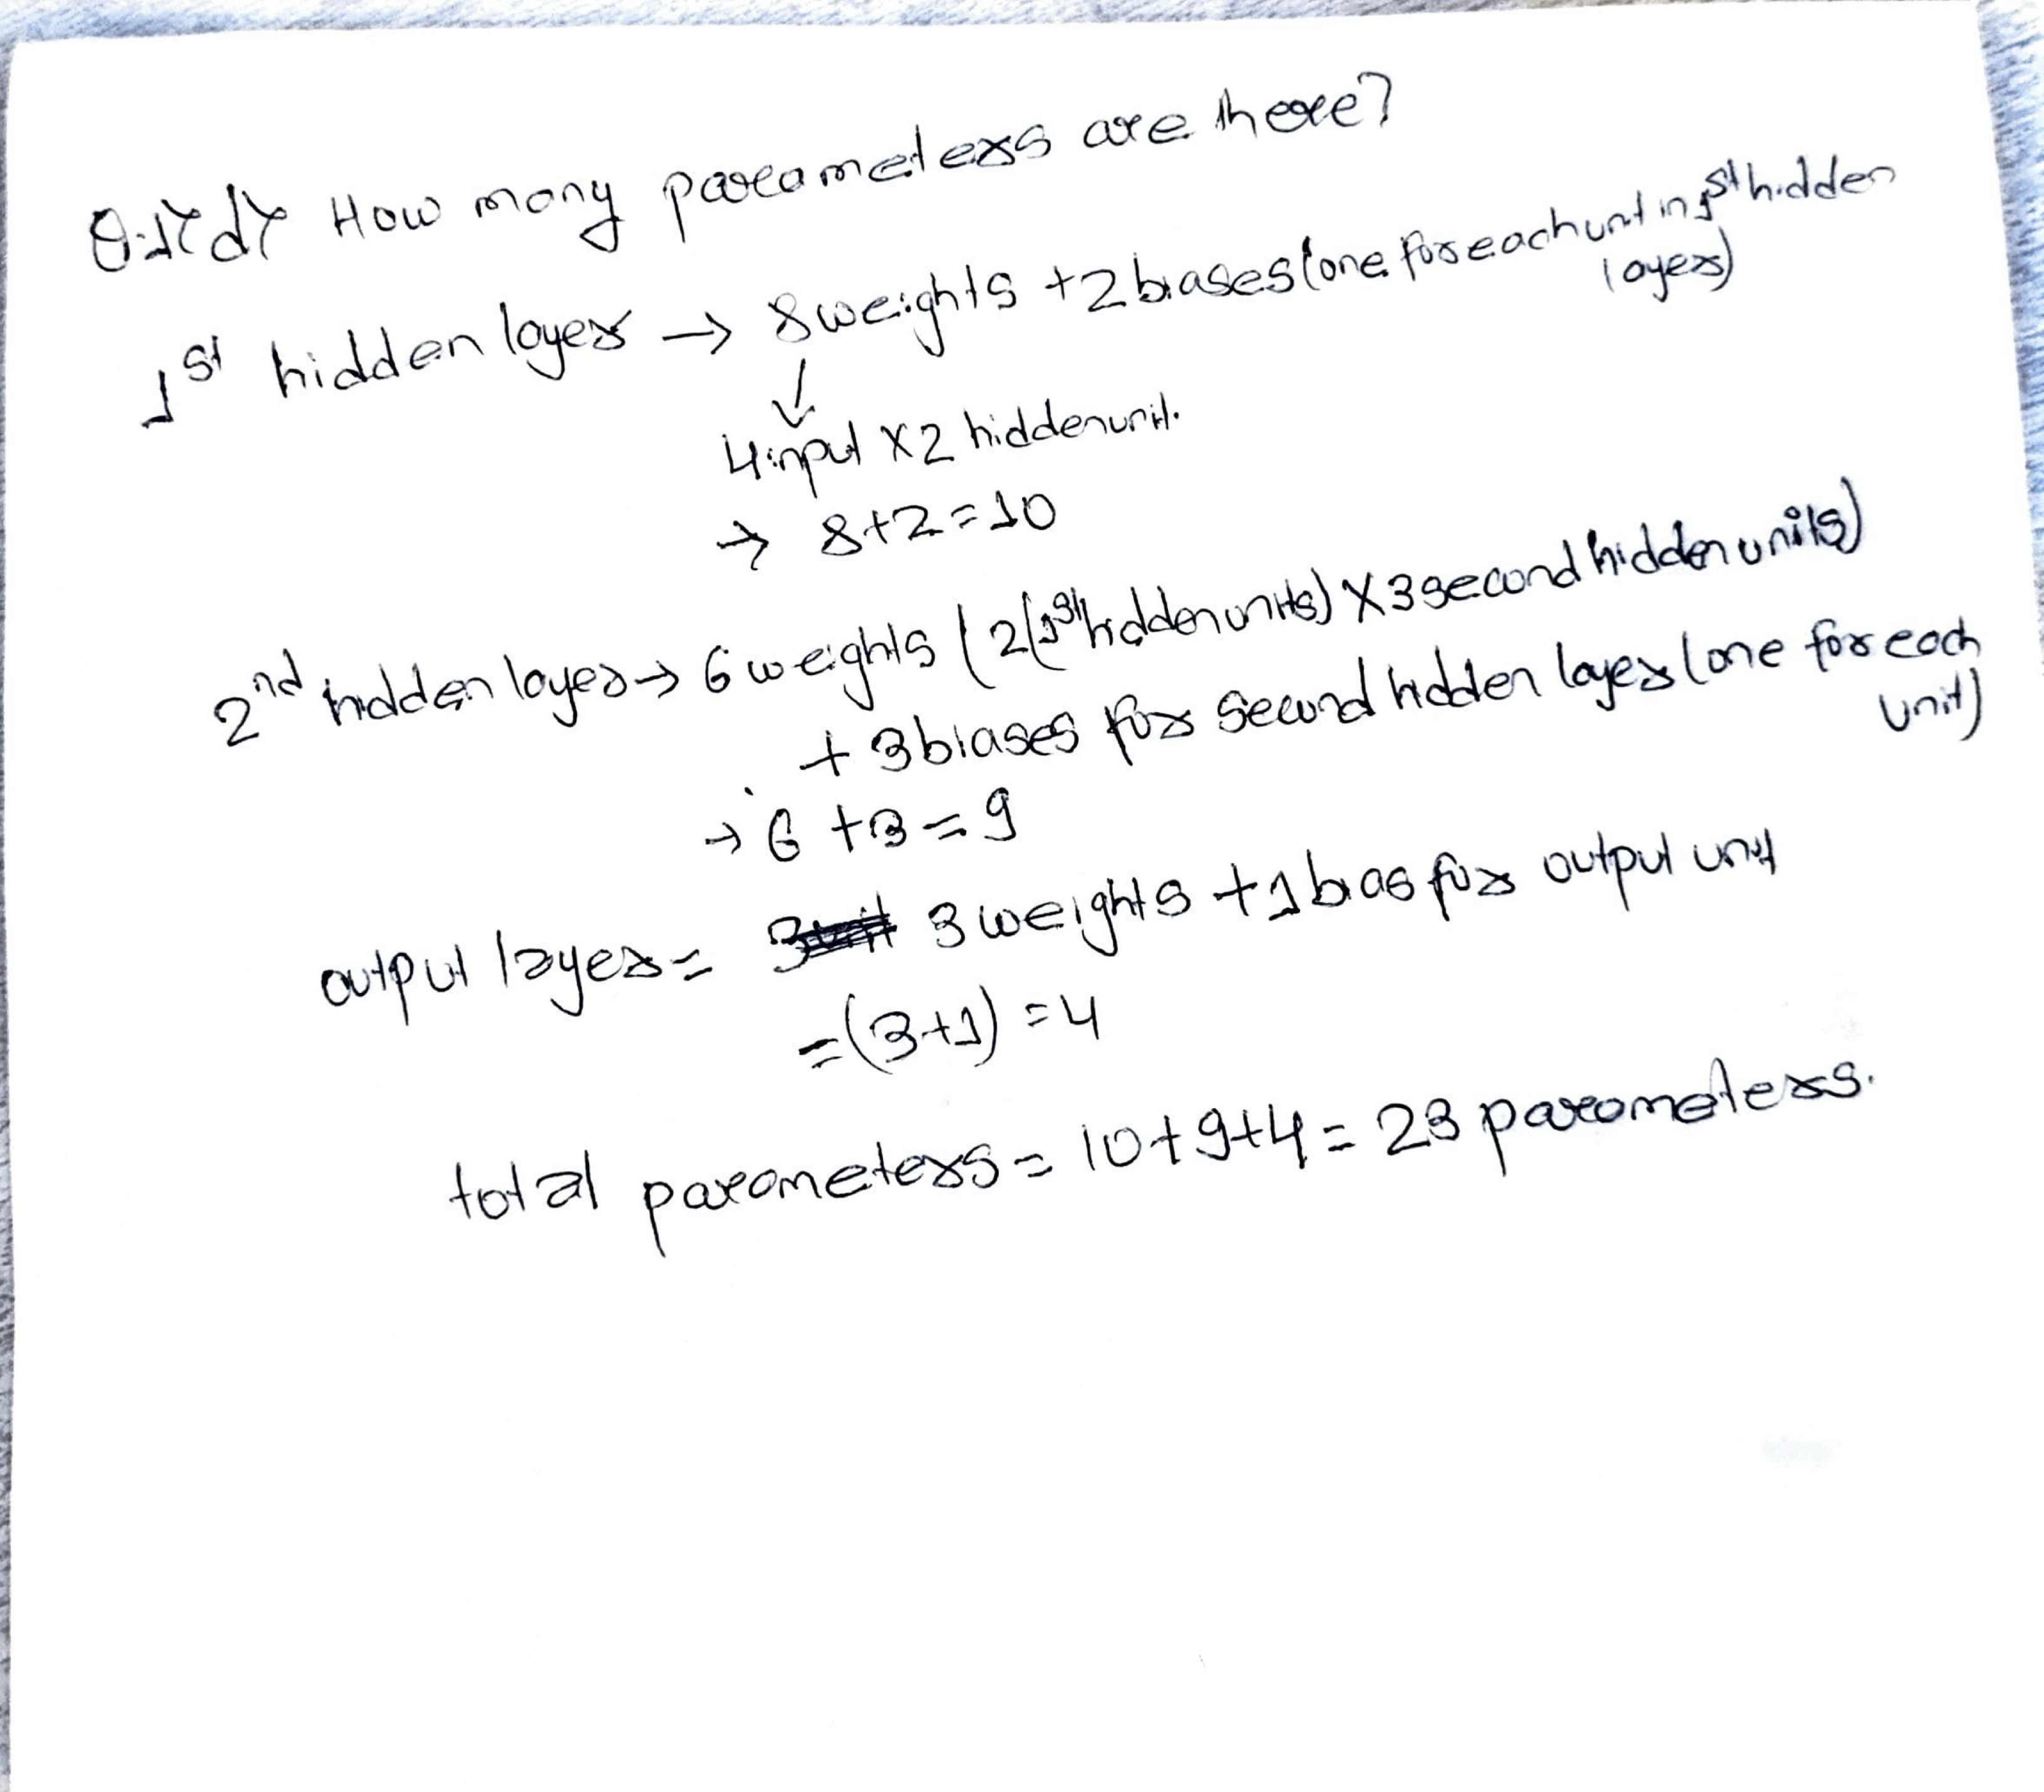 Q.1) d) How many parameters are there?
1st hidden layer → 8 weights + 2 biases (one for each unit in 1st hidden layer)
↓
4 input X 2 hidden unit.
→ 8+2=10
2nd hidden layer → 6 weights (2 (1st hidden units) X 3 second hidden units)
+ 3 biases for second hidden layer (one for each unit)
→ 6 + 3 = 9
output layer = 3 weights + 1 bias for output unit
= (3+1) = 4
total parameters = 10+9+4 = 23 parameters.